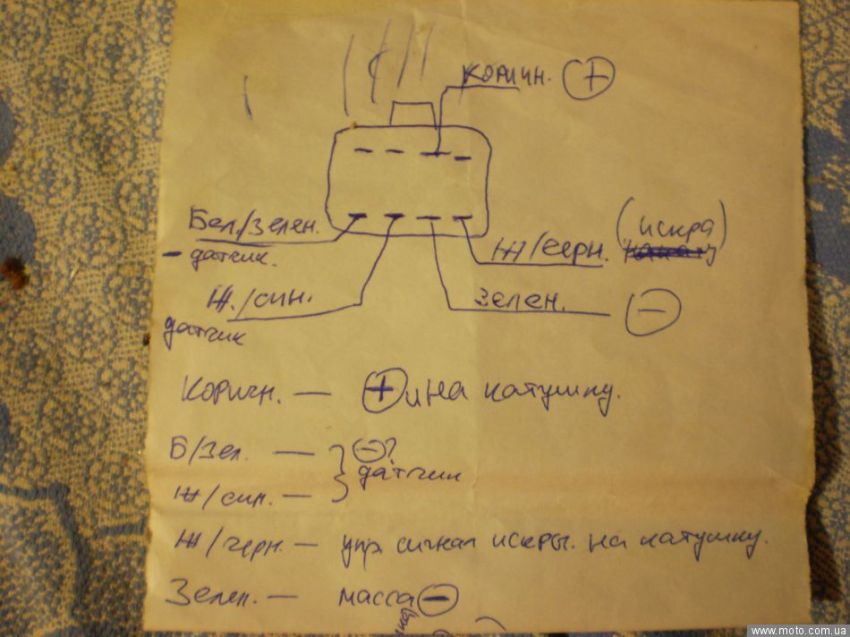 коричн. (+)
Бел/зелен.
- датчик.
Ж/черн. (искра)
Ж./син.
датчик
зелен. (-)
Коричн. — (+) и на катушку.
Б/Зел. — (-)?
датчик
Ж/син. —
Ж/черн. — упр сигнал искры. на катушку.
Зелен. — масса (-)
www.moto.com.ua